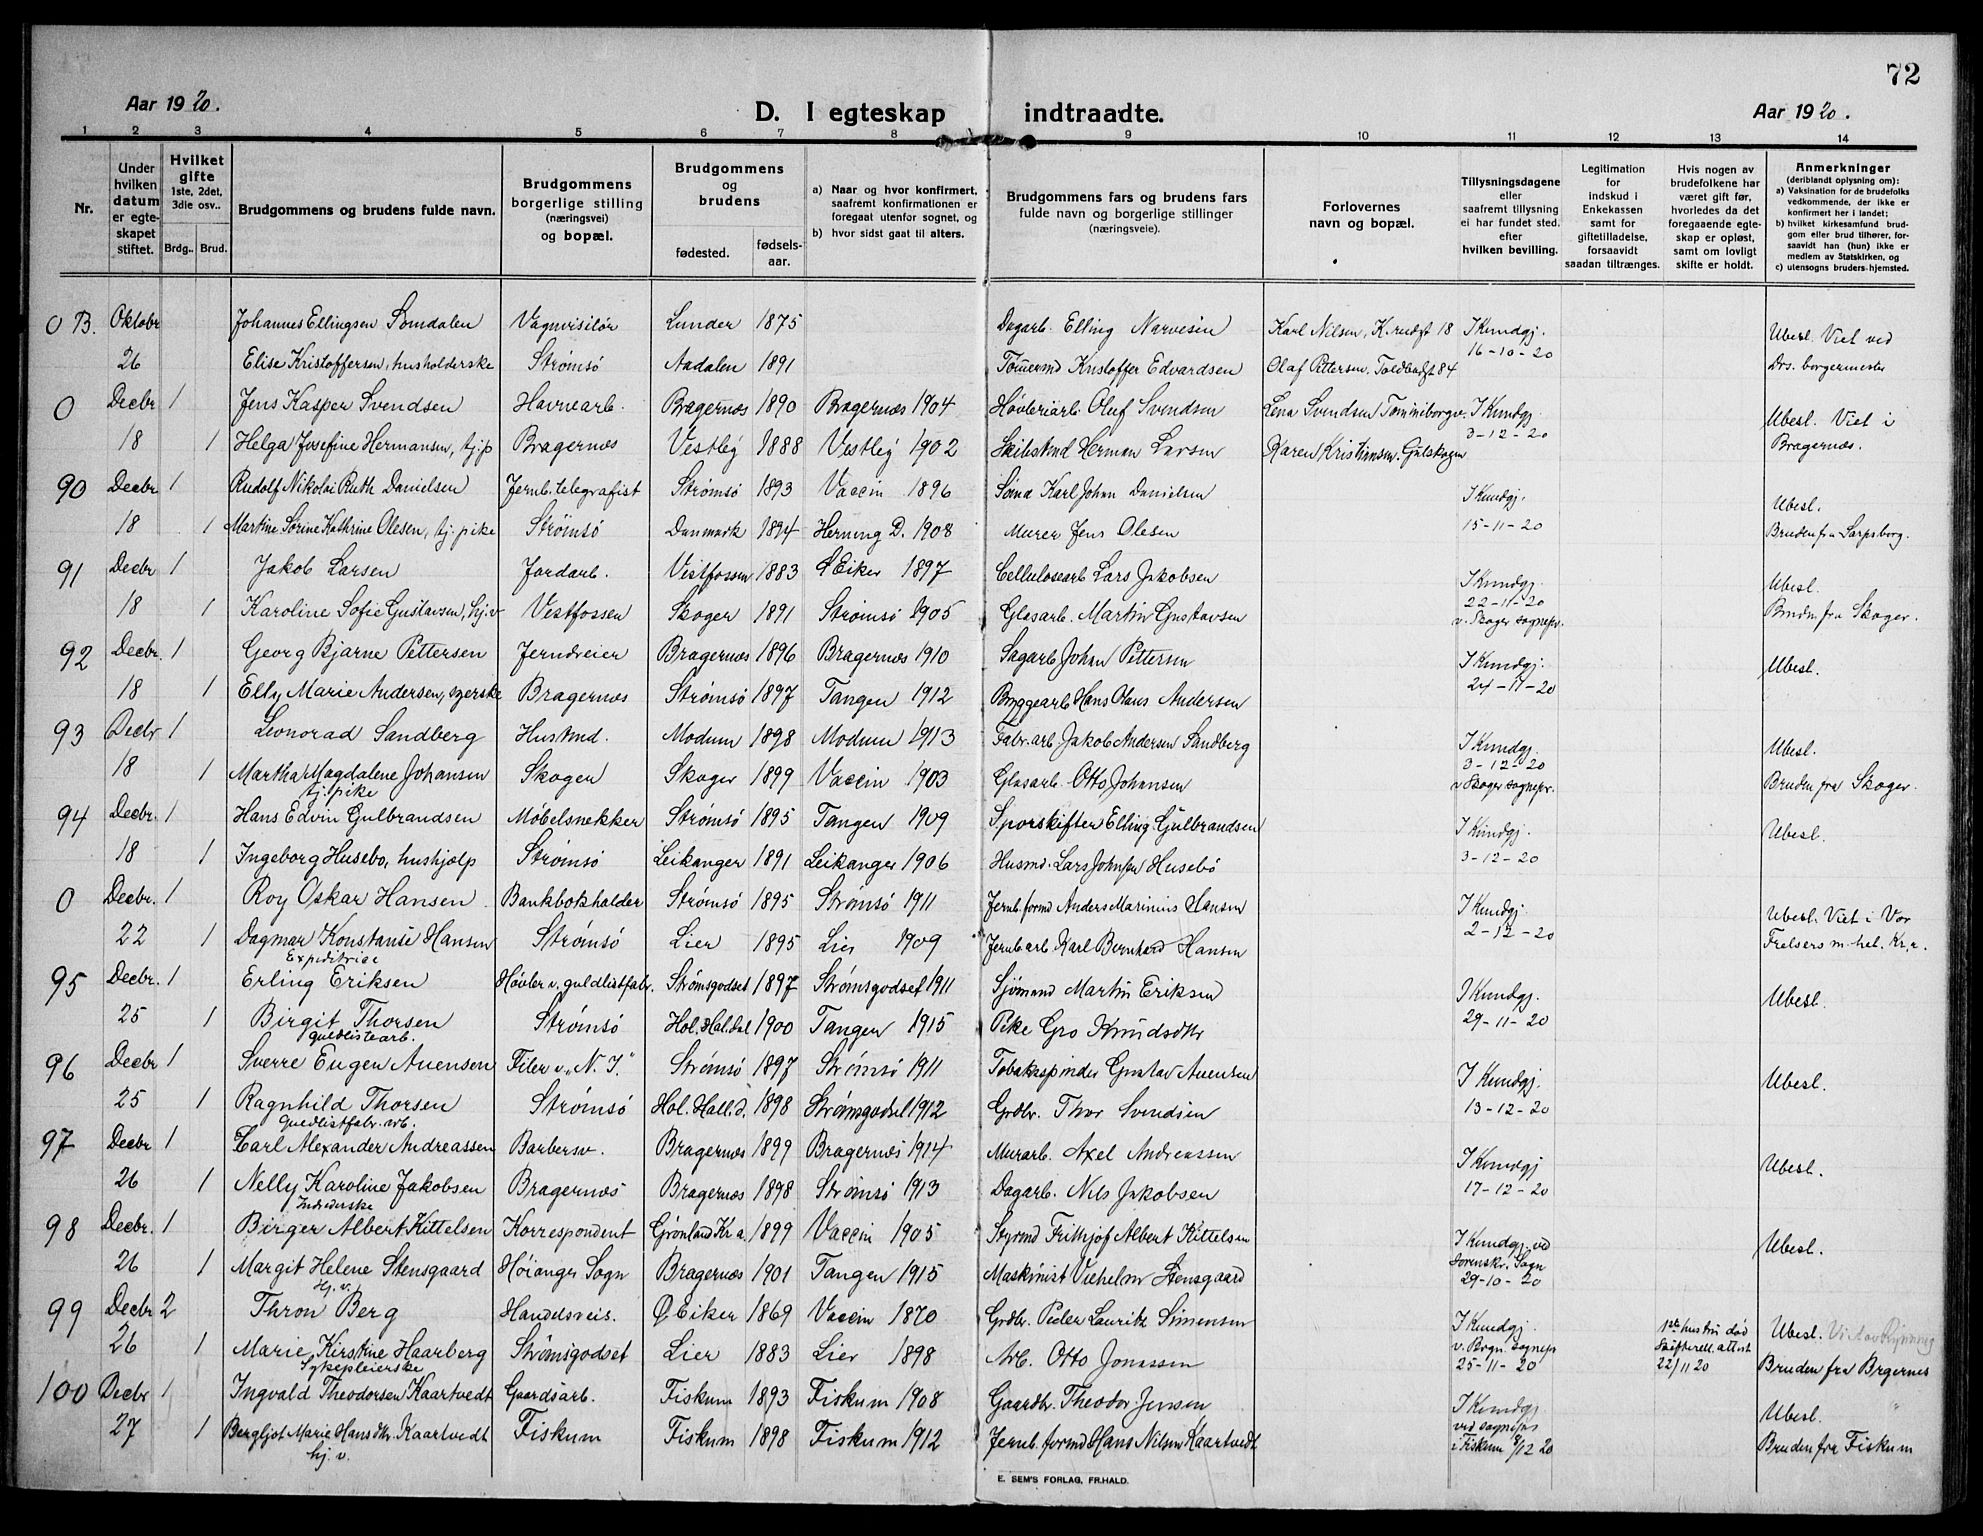 72
Aar 1920.
D. I egteskap indtraadte.
Aar 1920.
1 2 3 4 5 6 7 8 9 10 11 12 13 14
Nr.
Under hvilken datum er egteskapet stiftet.
Hvilket gifte 1ste, 2det, 3die osv..
Brdg.. Brud.
Brudgommens og brudens fulde navn.
Brudgommens borgerlige stilling (næringsvei) og bopæl.
Brudgommens og brudens
fødested. fødsels-aar.
a) Naar og hvor konfirmert, saafremt konfirmationen er foregaat utenfor sognet, og
b) hvor sidst gaat til alters.
Brudgommens fars og brudens fars fulde navn og borgerlige stillinger (næringsveie).
Forlovernes navn og bopæl.
Tillysningsdagene eller saafremt tillysning ei har fundet sted. efter hvilken bevilling.
Legitimation for indskud i Enkekassen samt for giftetilladelse, forsaavidt saadan tiltrænges.
Hvis nogen av brudefolkene har været gift før, hvorledes da det foregaaende egteskap er opløst, samt om lovligt skifte er holdt.
Anmerkninger (deriblandt oplysning om): a) Vaksination for de brudefolks vedkommende, der ikke er konfirmert her i landet; b) hvilket kirkesamfund brudgom eller brud tilhører, forsaavidt han (hun) ikke er medlem av Statskirken, og c) utensogns bruders-hjemsted.
0 B. Oktobr Johannes Ellingsen Somdalen Vognvisitør Lunder 1875 Dagarb. Elling Narvesen Karl Nilsen, K. rudgt 18 I Kundgj. 16-10-20 Ubesl. Viet ved
26 Elise Kristoffersen, husholderske Strømsø Aadalen 1891 Tømermd Kristoffer Edvardsen Olaf Pettersen. Toldbodgt 84 Drs. borgermester
0 Decbr 1 Jens Kasper Svendsen Havnearb. Bragernæs 1890 Bragernæs 1904 Høvleriarb. Oluf Svendsen Lena Svendsen I Kundgj. 3-12-20 Ubesl. Viet i
18 1 Helga Josefine Hermansen, tj.p Bragernæs Vestby 1888 Vestby 1902 Skibstmd Herman Larsen Karen Kristiansen. Gulskogen Bragernæs.
90 Decbr 1 Rudolf Nikolai Ruth Danielsen Jernb.telegrafist Strømsø 1893 Vaccin 1896 Sømd Karl Johan Danielsen I Kundgj. Ubesl.
18 1 Martine Sørine Kathrine Olesen, tj. pike Strømsø Danmark 1894 Herning D. 1908 Murer Jens Olesen 15-11-20 Bruden fra Sarpsborg.
91 Decbr 1 Jakob Larsen Jordarb. Vestfossen 1883 Ø Eiker 1897 Cellulosearb. Lars Jakobsen I Kundgj. 22-11-20 Ubesl.
18 1 Karoline Sofie Gustavsen, hj.v Vestfossen Skoger 1891 Strømsø 1905 Glasarb. Martin Gustavsen v. Skoger sognepr. Bruden fra Skoger.
92 Decbr. 1 Georg Bjarne Pettersen Jerndreier Bragernæs 1896 Bragernæs 1910 Sagarb Johan Pettersen I Kundgj. Ubesl.
18 1 Elly Marie Andersen, syerske Bragernæs Strømsø 1897 Tangen 1912 Bryggearb Hans Olaus Andersen 24-11-20
93 Decbr 1 Leonorad Sandberg Husmd. Modum 1898 Modum 1913 Fabr.arb. Jakob Andersen Sandberg I Kundgj. 3-12-20 Ubesl.
18 1 Martha Magdalene Johansen tj. pike Skoger Skoger 1899 Vaccin 1903 Glasarb. Otto Johansen v Skoger sognepr. Bruden fra Skoger.
94 Decbr. 1 Hans Edvin Gulbrandsen Møbelsnekker Strømsø 1895 Tangen 1909 Sporskifter Elling Gulbrandsen I Kundgj. Ubesl.
18 1 Ingeborg Husebø, hushjælp Strømsø Leikanger 1891 Leikanger 1906 Husmd. Lars Johnsen Husebö 3-12-20
0 Decbr. 1 Roy Oskar Hansen Bankbokholder Strømsø 1895 Strømsø 1911 Jernb.formd Anders Marinius Hansen I Kundgj. Ubesl. Viet i Vor
22 1 Dagmar Konstanse Hansen Expeditrice Strømsø Lier 1895 Lier 1909 Jernbarb. Karl Bernhard Hansen 2-12-20 Frelsers m.het. Kr.a.
95 Decbr. 1 Erling Eriksen Høvler v. guldlistfabr. Strømsgodset 1897 Strømsgodset 1911 Sjømand Martin Eriksen I Kundgj. Ubesl.
25 1 Birgit Thorsen guldlistearb. Strømsø Hol. Hal.dal 1900 Tangen 1915 Pike Gro Knudsdtr 29-11-20
96 Decbr 1 Sverre Eugen Auensen Filer v. "N. I." Strømsø 1897 Strømsø 1911 Tobakspinder Gustav Auensen I Kundgj. Ubesl.
25 1 Ragnhild Thorsen guldlistfabr. arb. Strømsø Hol. Hall.d. 1898 Strømsgodset 1912 Grdbr. Thor Svendsen 13-12-20
97 Decbr 1 Carl Alexander Andreassen Barbersv. Bragernæs 1899 Bragernæs 1914 Murarb. Axel Andreassen I Kundgj Ubesl.
26 1 Nelly Karoline Jakobsen Bragernæs Bragernæs 1898 Strømsø 1913 Dagarb. Nils Jakobsen 17-12-20
98 Decbr. 1 Birger Albert Kittelsen Korrespondent Grønland Kr a. 1899 Vaccin 1905 Styrmd Frithjof Albert Kittelsen I Kundgj. ved Ubesl.
26 1 Margit Helene Stensgaard Hj. v. Høianger Sogn Bragernæs 1901 Tangen 1915 Maskinist Vilhelm Stensgaard Sorenskr. Sogn 29-10-20
99 Decbr 2 Thron Berg Handelsreis. Ø Eiker 1869 Vaccin 1870 Grdbr. Peder Lauritz Simensen I Kundgj. 1ste hustru død Ubesl. Viet av
26 1 Marie Kirstine Haarberg Sykepleierske Strømsgodset Lier 1883 Lier 1898 Arb. Otto Jonassen v. Brgn. sognepr 25-11-20 Skifterett. attest 22/11 20 Bruden fra Brgernes
100 Decbr 1 Ingvald Theodorsen Kaartvedt Gaardsarb. Fiskum 1893 Fiskum 1908 Gaardbr. Theodor Jensen I Kundgj Ubesl.
27 1 Bergljot Marie Hansdtr. Kaartvedt hj. v. Fiskum Fiskum 1898 Fiskum 1912 Jernb.formd Hans Nilsen Kaartvedt ved sognepr i Fiskum 8/12 20 Bruden fra Fiskum
E. SEM'S FORLAG, FR.HALD.